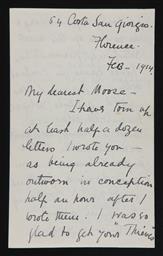 54 Costa San Giorgio.
Florence.
Feb – 1914
My dearest Moose –
I have torn up
at least half a dozen
letters I wrote you –
as being already
outworn in conception
half an hour after I
wrote them. I was so
glad to get your "Things